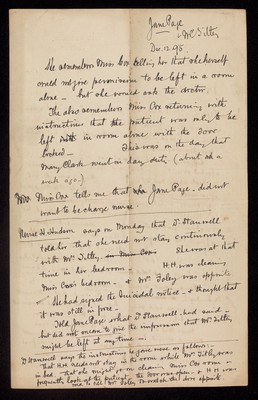 Jane Page
& Mr Tilley
Dec. 12. 95.
She remembers Miss Cox telling her that she herself
could not give permission to be left in a room
alone – but she would ask the doctor.
She also remembers Miss Cox returning with
instructions that the patient was only to be
left in room alone with the door
locked – This was on the day that
Mary Clark went on day duty (about a
week ago.)
Miss Cox tells me that Jane Page did not
want to be charge nurse
Nurse H. Hudson says on Monday that Dr Stanwell
told her that she need not stay continuously
with Mr Tilley, She was at that
time in her bedroom – H.H. was cleaning
Miss Cox's bedroom – & Mr Foley was opposite
She had signed the Suicidal notice & thought that
it was still in force.
Told Jane Page what Dr Stanwell had said –
but did not mean to give the impression that Mr Tilley
might be left at any time –
Dr Stanwell says the instructions he gave were as follows:–
That H.H. need not stay in the room while Mr Tilley was
in bed – that she might go on cleaning Miss Cox's room &
frequently look at the patient, the door was open – & H.H. was
and to tell Mr Foley to watch the door opposite